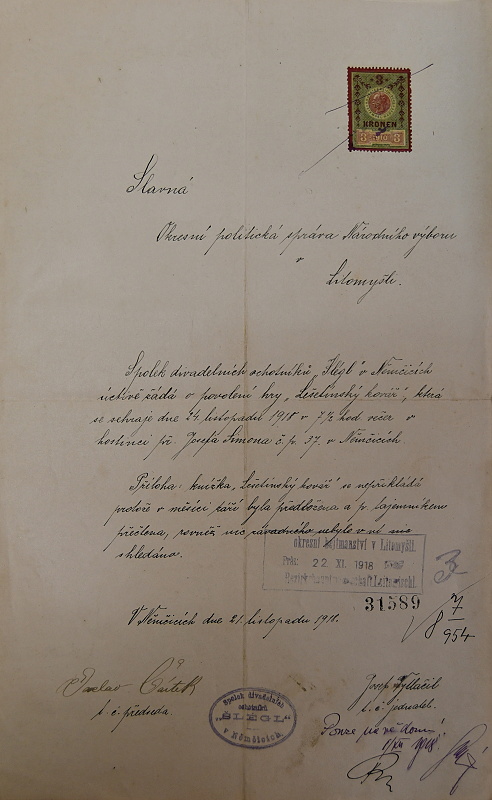 3
KRONEN
Slavná
Okresní politická správa Národního výboru
v
Litomyšli.
Spolek divadelních ochotníků „Šlégl" v Němčicích
uctivě žádá o povolení hry „Lešetínský kovář", která
se sehraje dne 24. listopadu 1918 v 7½ hod večer v
hostinci př. Josefa Šimona č.p. 37. v Němčicích
Příloha: knížka „Lešetínský kovář" se nepřikládá
protože v měsíci září byla předložena a p. tajemníkem
přečtena, rovněž nic závadného nebylo v ní
shledáno.
okresní hejtmanství v Litomyšli.
Präs: 22. XI. 1918
31589
V Němčicích dne 21. listopadu 1918.
7
8
954
Václav Bártek
t. č. předseda.
Spolek divadelních
ochotníků
„ŠLÉGL"
v Němčicích.
Josef Vytlačil
t. č. jednatel.
1/XII 1918